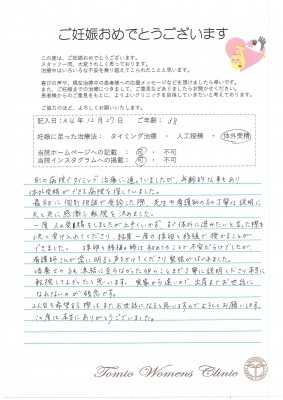 ご妊娠おめでとうございます
この度は、ご妊娠おめでとうございます。
スタッフ一同、大変うれしく思っております。
治療中はいろいろな不安を乗り越えてこられたことと思います。
喜びの声や、現在治療中の患者様への応援メッセージなどを頂けましたら幸いです。
また、ご妊娠までの治療につきまして、ご意見などありましたらお聞かせください。
患者様からのご意見をもとに、よりよいクリニックを目指していきたいと考えております。
ご協力のほど、よろしくお願いいたします。
記入日:R6年12月27日 ご年齢: 38
妊娠に至った治療法: タイミング治療 ・ 人工授精 ・ 体外受精
当院ホームページへの記載: 可 ・ 不可
当院インスタグラムへの掲載: 可 ・ 不可
別の病院でタイミング治療に通っていましたが、年齢的な事もあり
体外受精ができる病院を探していました。
最初に個別相談が受診った際、先生や看護師の方の丁寧な説明に
夫と共に感激し転院を決めました。
一度人工受精をしましたが上手くいかず、すぐ体外に進みたいと言った際も
快く受け入れてくださり、結果一度の採卵と移植で授かることが
できました。 採卵も移植も初めてのことで不安だらけでしたが
看護師さんが常に明るく声をかけてくださり緊張がほぐれました。
培養士の方も凍結に至らなかった卵のことまで丁寧に説明くださり本当に
転院してよかったと思います。 実家から遠いので、出産までお世話に
なれないのが残念です。
2人目を希望する際にはまたお世話になると思いますのでよろしくお願いします。
この度は本当にありがとうございました。
Tomio Womens Clinic